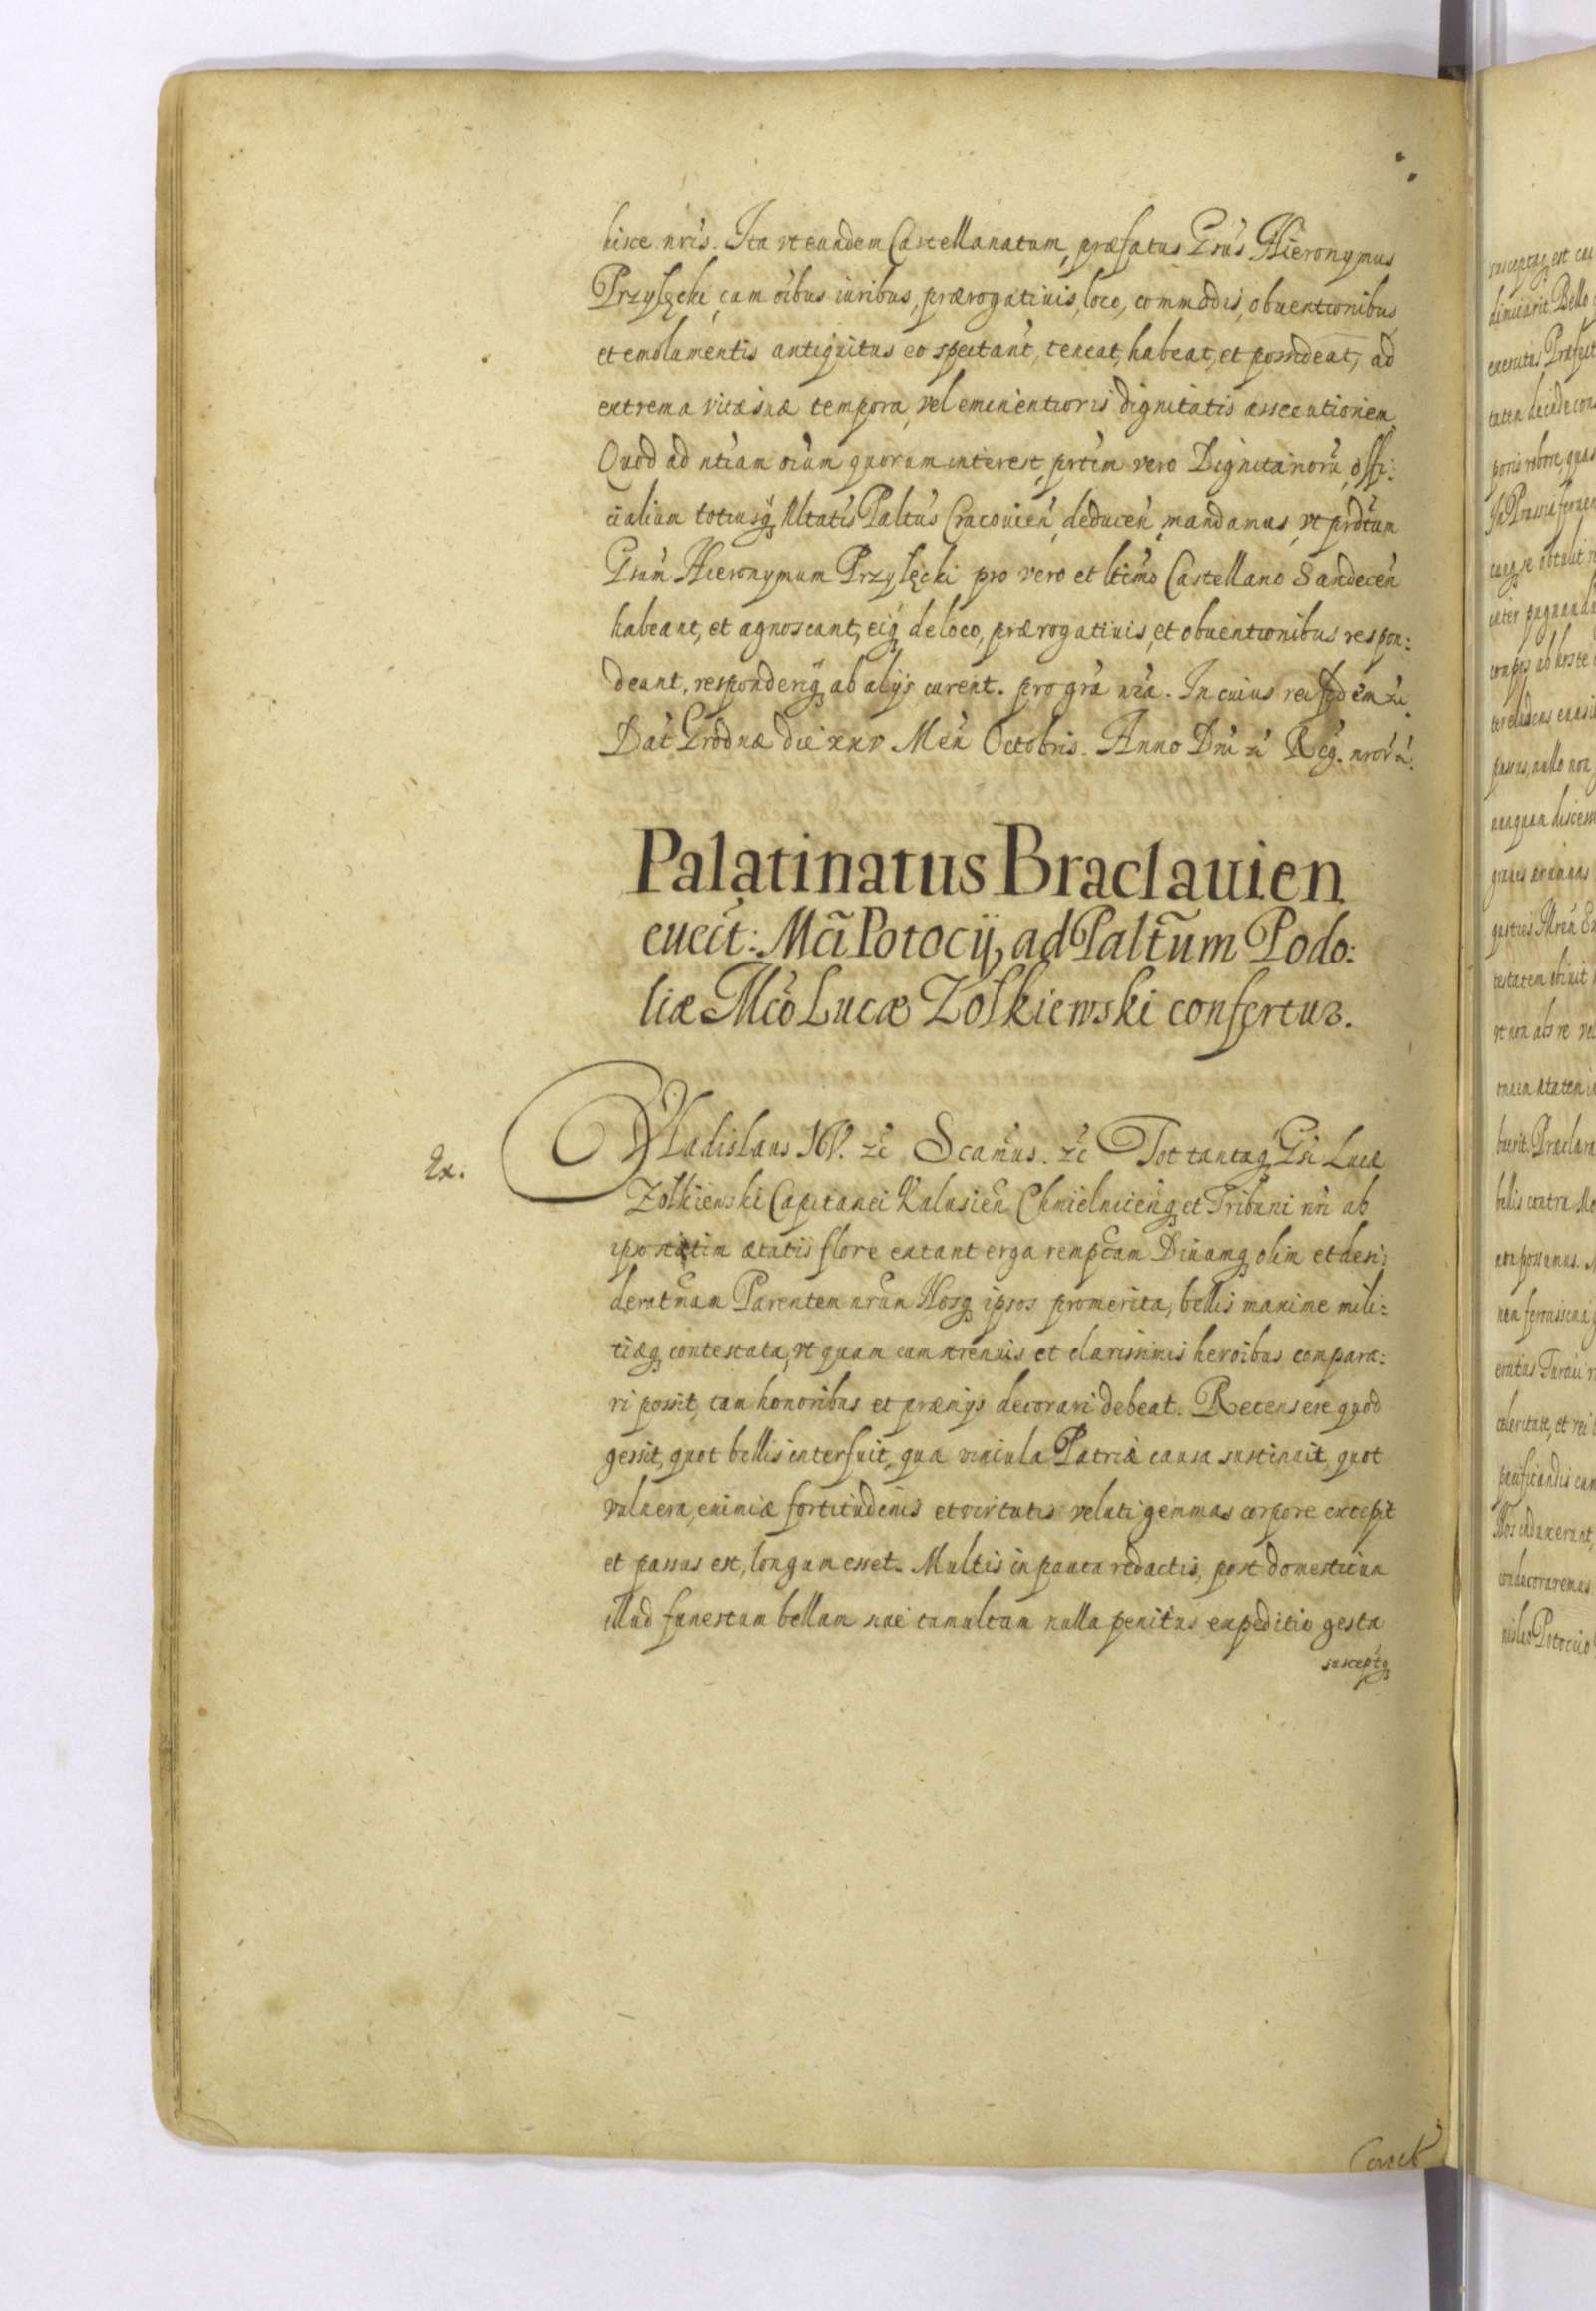 hisce nris. Ita vt eundem Castellanatum, præfatus Gnsus Hieronymus
Przyłęcki, cum oibus iuribus, prærogatiuis, loco, commodis, obuentionibus
et emolumentis antiquitus eo spectant, teneat, habeat, et possideat, ad
extrema vitæ suæ tempora, vel eminentioris dignitatis assecutionem
Quod ad ntiam oium quorum interest, prtim vero Dignitariorũ, offi:
cialium totiusq Nltatis Paltus Cracouien, deducen, mandamus, vt prdtum
Gsum Hieronymum Przyłęcki pro vero et ltimo Castellano Sandecen
habeant, et agnoscant, eiq de loco, prærogatiuis, et obuentionibus respon:
deant, responderiq ab alijs curent. pro gra nra. In cuius rei fidem zc.
Dat Grodnæ die xxv Men Octobris. Anno Dni zc Reg. nror zc.
Palatinatus Braclauien
euect: Mci Potocij, ad Paltũm Podo:
liæ Mco Lucæ Zołkiewski confertur.
Ex.
Vladislaus IV. zc Scamus. zc Tot tantaq Gsi Lucæ
Zołkiewski Capitanei Kalusien Chmielniceńq et Tribuni nri ab
ipso statim ætatis flore extant erga rempcam Diuamq olim et desi:
deratmam Parentem nrum Nosq ipsos promerita, bellis maxime mili:
tiæq contestata, vt quam cum strenuis et clarissimis heroibus compara:
ri possit, tam honoribus et præmijs decorari debeat. Recensere quod
gessit, quot bellis interfuit, qua vincula Patriæ causa sustinuit, quot
vulnera, eximiæ fortitudinis et virtutis veluti gemmas corpore excepit
et passus est, longum esset. Multis in pauca redactis, post domesticum
illud funestum bellum siue tumultum nulla penitus expeditio gesta
susceptaq